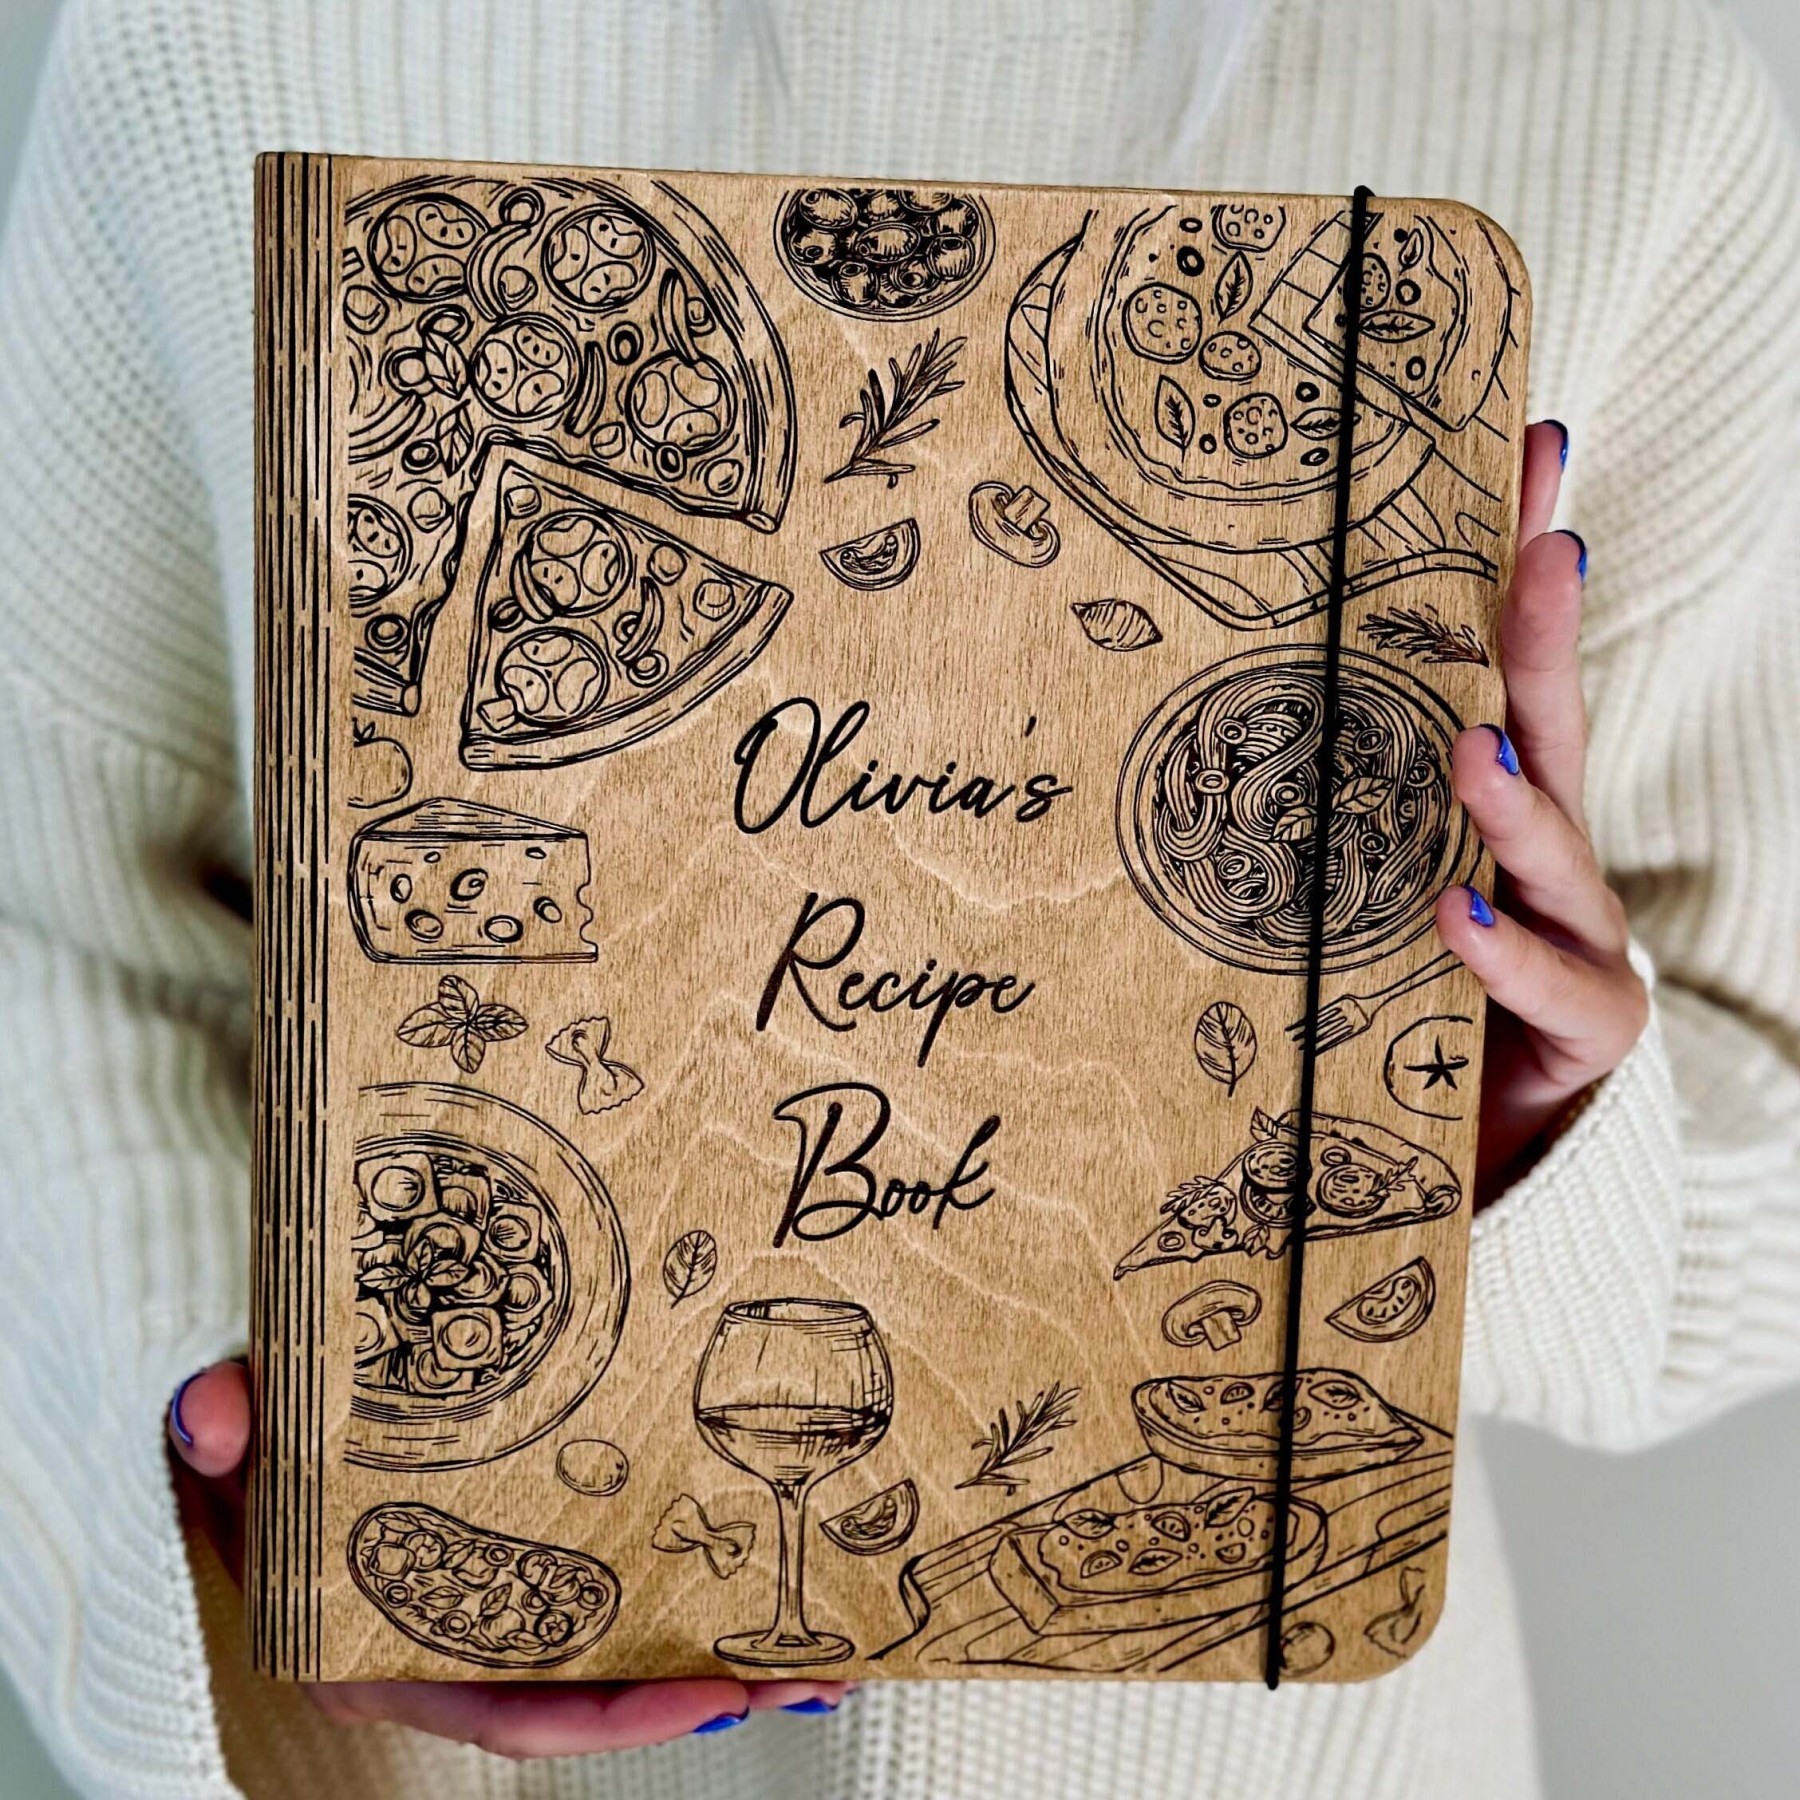 Olivia's
Recipe
Book